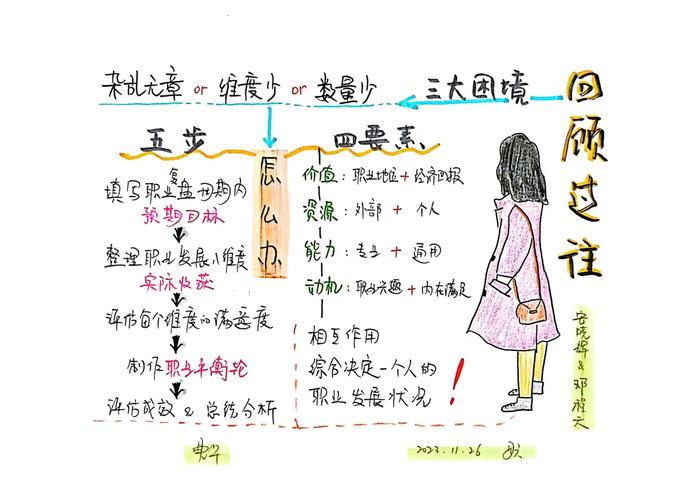 回顾过往
三大困境
杂乱无章 or 维度少 or 数量少
怎么办
五步
填写职业复盘周期内
预期目标
整理职业发展小维度
实际收获
评估每个维度的满意度
制作职业平衡轮
评估成效 & 总结分析
四要素
价值：职业地位 + 经济回报
资源：外部 + 个人
能力：专业 + 通用
动机：职业兴趣 + 内在满足
相互作用
综合决定一个人的
职业发展状况！
安晓辉 &
2023.11.26